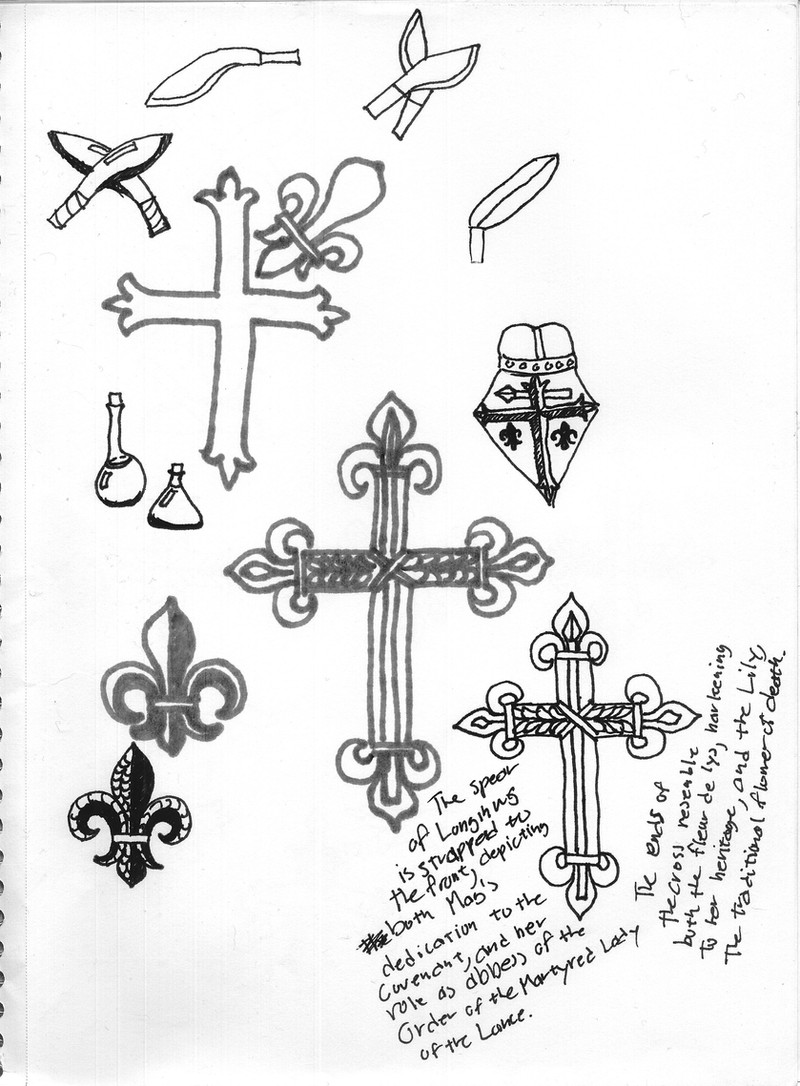 The spear
of Longinus
is strapped to
the front, depicting
both Mag's
dedication to the
covenant, and her
role as abbess of the
Order of the Martyred Lady
of the Lance.
The ends of
the cross resemble
both the fleur de lys, harkening
to her heritage, and the Lily,
The traditional flower of death.